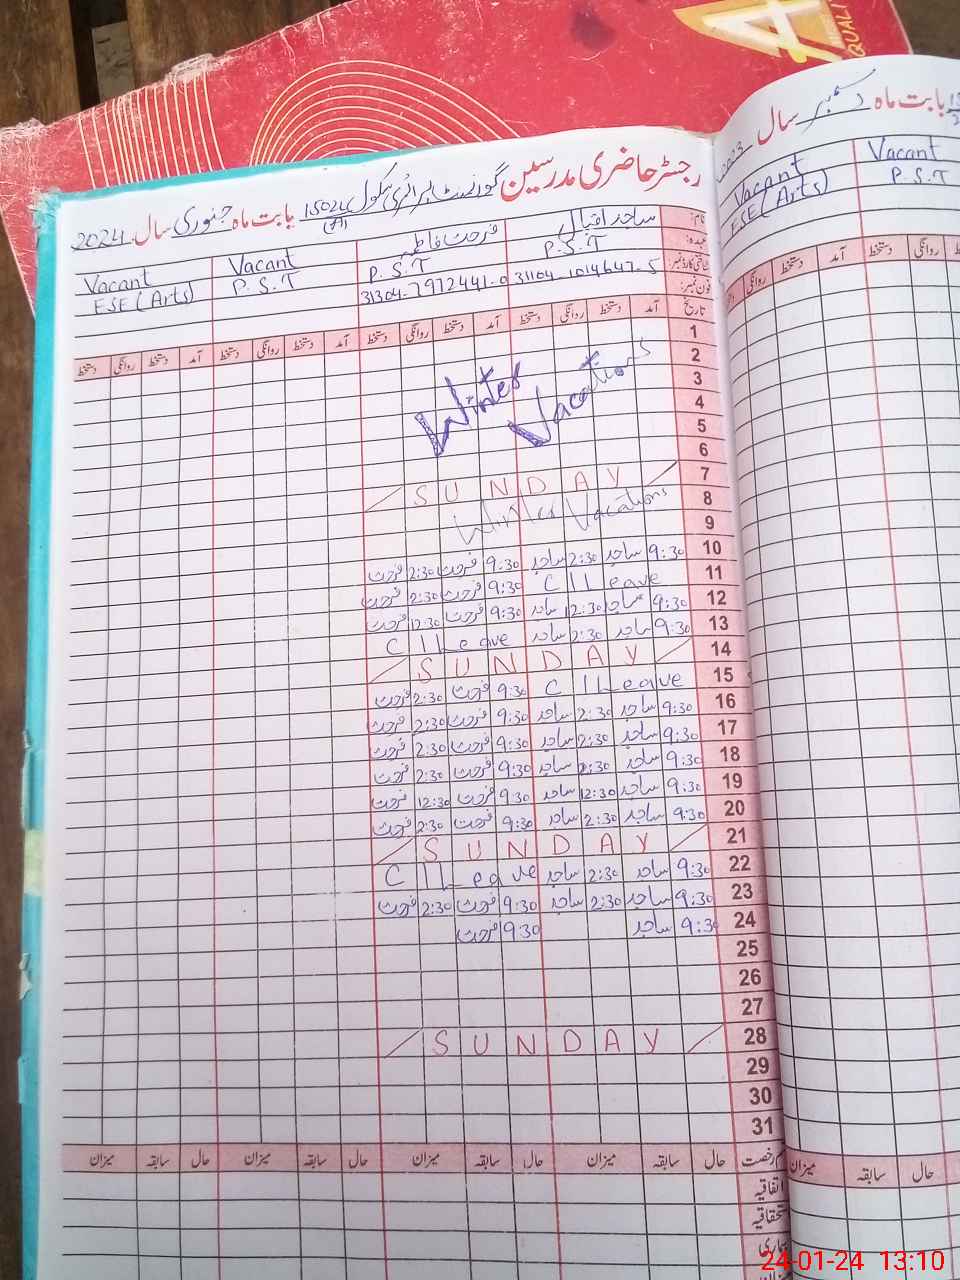 A
QUALI
رجسٹر حاضری مدرسین گورنمنٹ پرائمری سکول 150 بابت ماہ جنوری سال 2024
نام: ساجد اقبال فرحت فاطمہ Vacant Vacant
عہدہ: P.S.T P.S.T P.S.T ESE (Arts)
شناختی کارڈ نمبر: 31104-1014647-5 31304-7972441-0
فون نمبر:
تاریخ آمد دستخط روانگی دستخط آمد دستخط روانگی دستخط آمد دستخط روانگی دستخط آمد دستخط روانگی دستخط
1
2
3 Winter Vacations
4
5
6
7 SUNDAY
8 Winter Vacations
9
10 9:30 ساجد 2:30 ساجد 9:30 فرحت 2:30 فرحت
11 C/Leave 9:30 فرحت 2:30 فرحت
12 9:30 ساجد 12:30 ساجد 9:30 فرحت 12:30 فرحت
13 9:30 ساجد 2:30 ساجد C/Leave
14 SUNDAY
15 C/Leave 9:30 فرحت 2:30 فرحت
16 9:30 ساجد 2:30 ساجد 9:30 فرحت 2:30 فرحت
17 9:30 ساجد 2:30 ساجد 9:30 فرحت 2:30 فرحت
18 9:30 ساجد 2:30 ساجد 9:30 فرحت 2:30 فرحت
19 9:30 ساجد 12:30 ساجد 9:30 فرحت 12:30 فرحت
20 9:30 ساجد 2:30 ساجد 9:30 فرحت 2:30 فرحت
21 SUNDAY
22 9:30 ساجد 2:30 ساجد C/Leave
23 9:30 ساجد 2:30 ساجد 9:30 فرحت 2:30 فرحت
24 9:30 ساجد 9:30 فرحت
25
26
27
28 SUNDAY
29
30
31
رخصت حال سابقہ میزان حال سابقہ میزان حال سابقہ میزان حال سابقہ میزان
اتفاقیہ
بابت ماہ دسمبر سال 2023
Vacant Vacant
P.S.T ESE (Arts)
آمد دستخط روانگی دستخط
حال سابقہ میزان
24-01-24 13:10